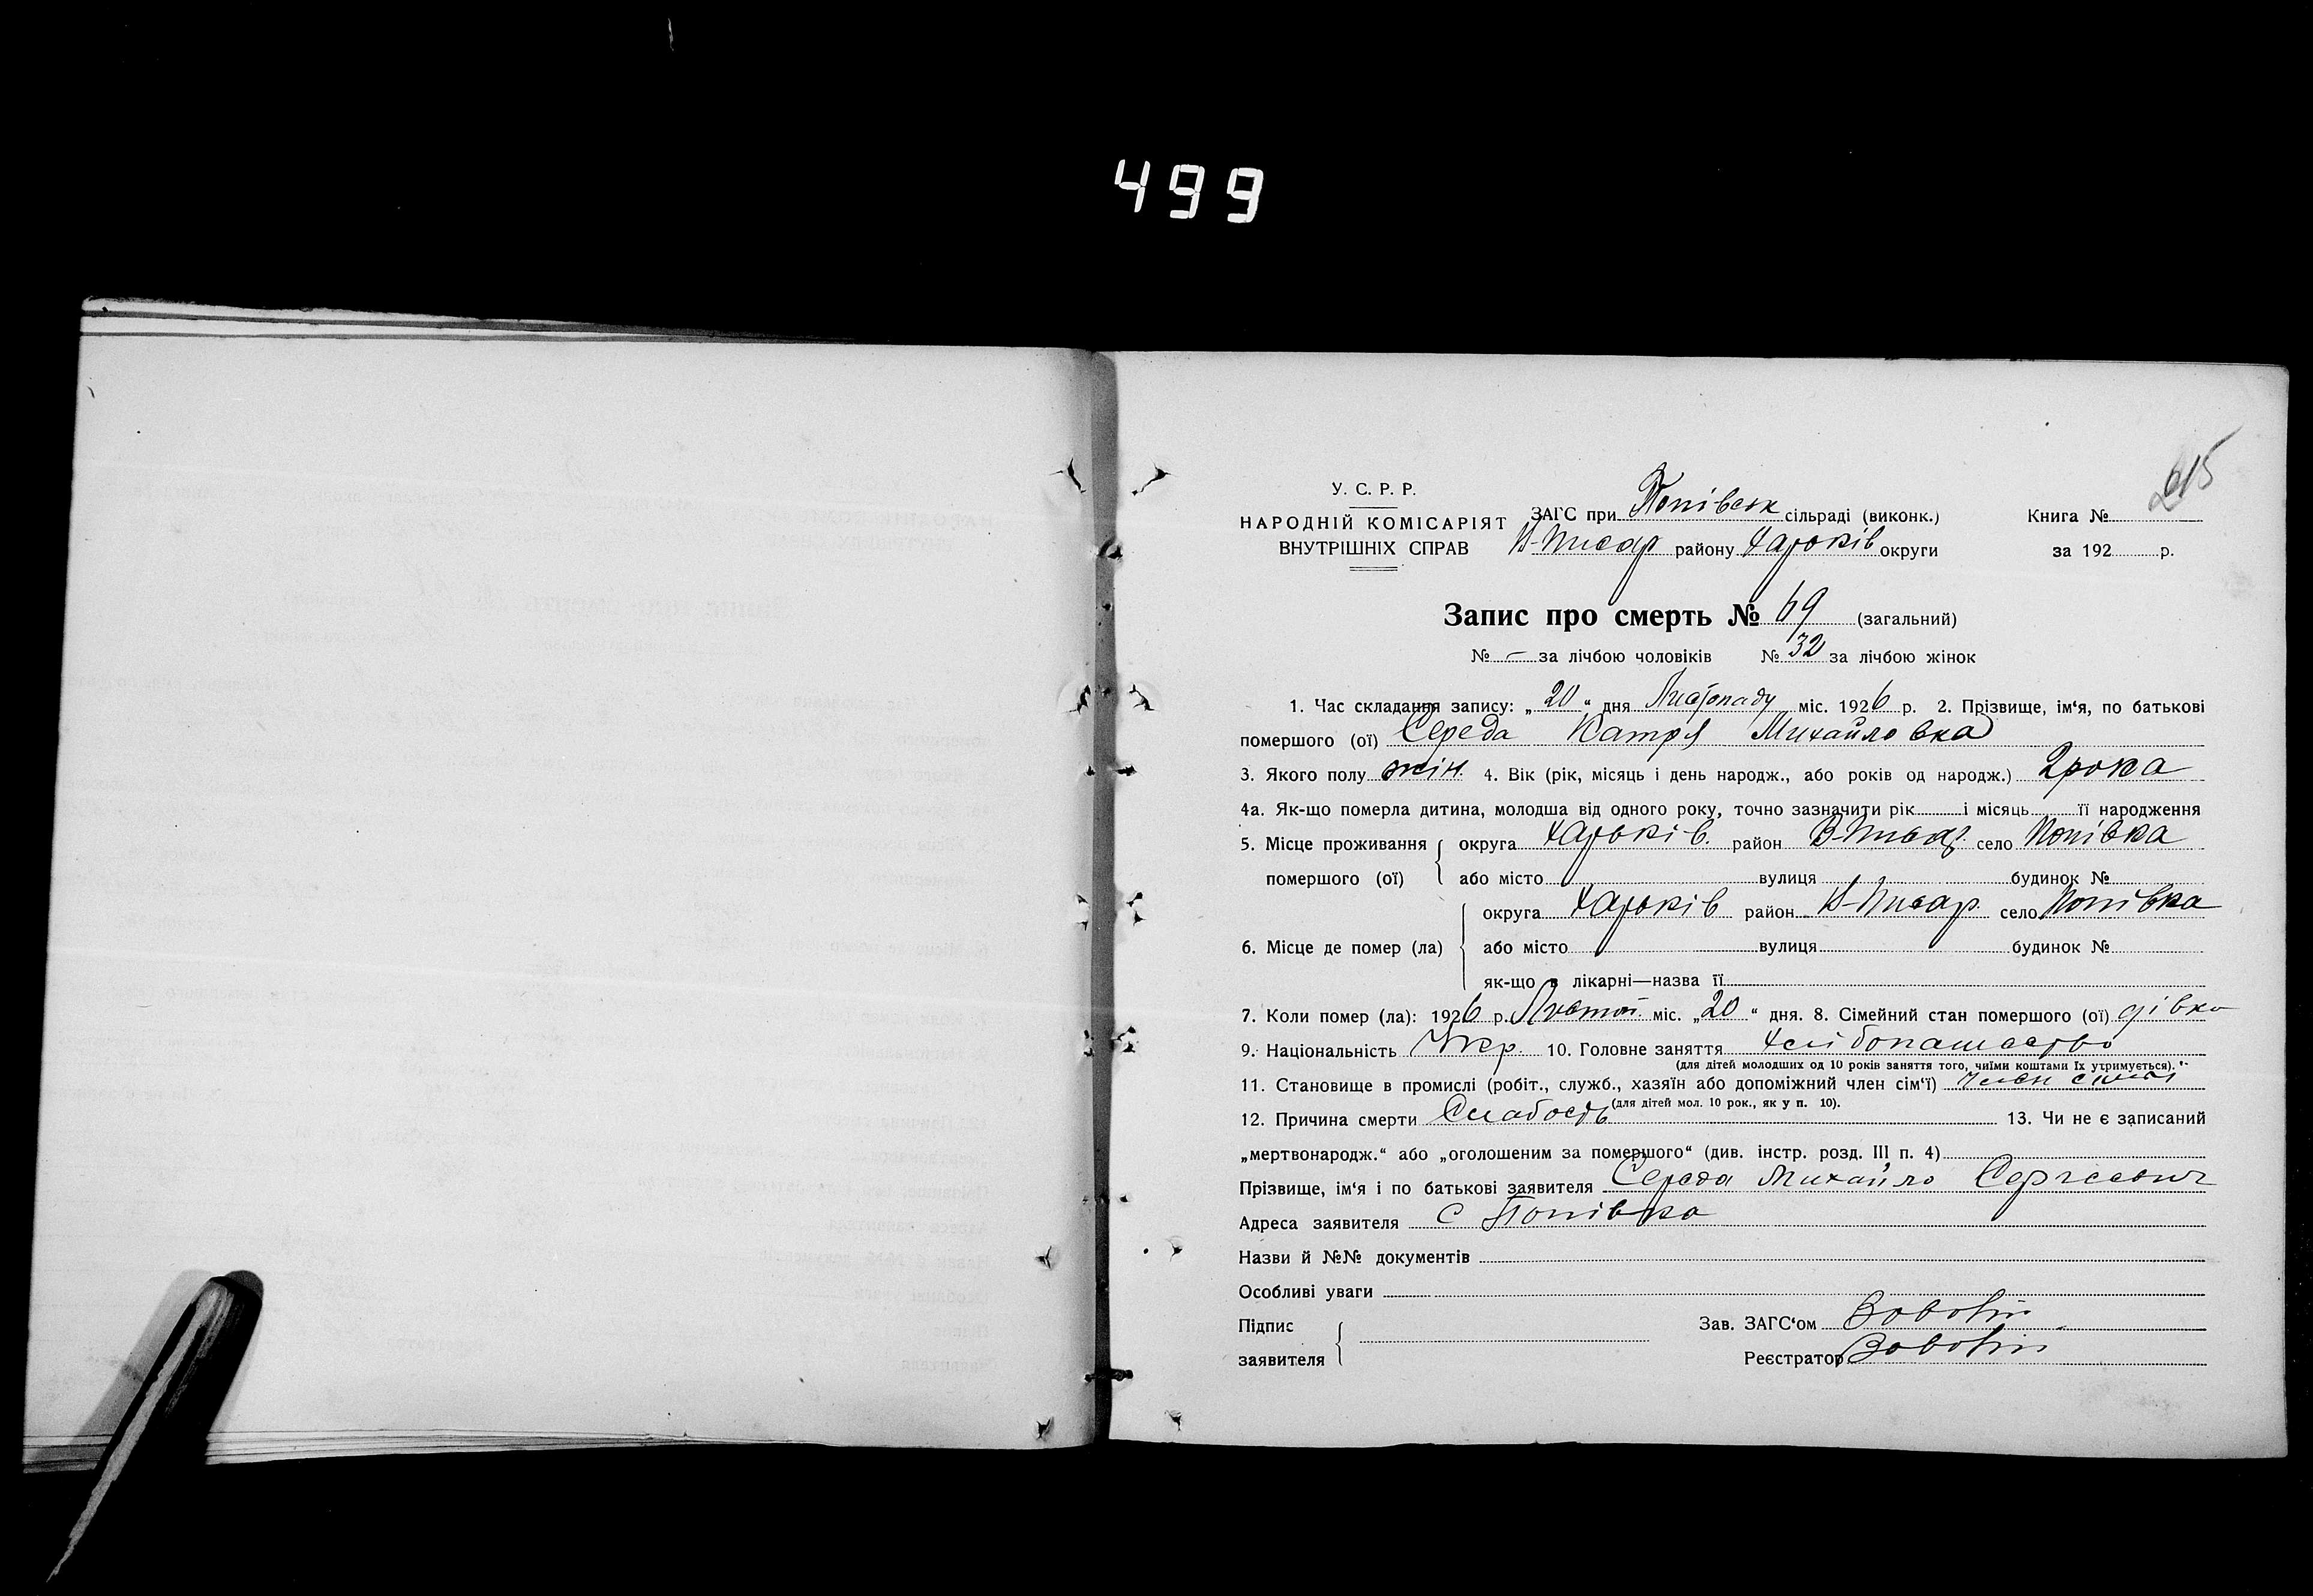 499
215
У. С. Р. Р.
НАРОДНІЙ КОМІСАРІЯТ
ВНУТРІШНІХ СПРАВ
ЗАГС при Попівськ сільраді (виконк.)
В-Писар району Харьків округи
Книга №
за 192 р.
Запис про смерть № 69 (загальний)
№ — за лічбою чоловіків № 32 за лічбою жінок
1. Час складання запису: „20“ дня Листопаду міс. 1926 р. 2. Прізвище, ім‘я, по батькові
помершого (ої) Середа Катря Михайловка
3. Якого полу жін. 4. Вік (рік, місяць і день народж., або років од народж.) 2 рока
4а. Як-що померла дитина, молодша від одного року, точно зазначити рік і місяць її народження
5. Місце проживання помершого (ої) округа Харьків. район В-Писар. село Попівка
або місто вулиця будинок №
6. Місце де помер (ла) округа Харьків район В-Писар. село Попівка
або місто вулиця будинок №
як-що в лікарні—назва її
7. Коли помер (ла): 1926 р. Листоп. міс. „20“ дня. 8. Сімейний стан помершого (ої) дівка
9. Національність Укр. 10. Головне заняття Хлібопашество
(для дітей молодших од 10 років заняття того, чиїми коштами їх утримується).
11. Становище в промислі (робіт., служб., хазяїн або допоміжний член сім‘ї) член сімї
(для дітей мол. 10 рок., як у п. 10).
12. Причина смерти Слабость 13. Чи не є записаний
„мертвонародж.“ або „оголошеним за помершого“ (див. інстр. розд. III п. 4)
Прізвище, ім‘я і по батькові заявителя Середа Михайло Сергеевич
Адреса заявителя С Попівка
Назви й №№ документів
Особливі уваги
Підпис заявителя
Зав. ЗАГС‘ом
Реєстратор